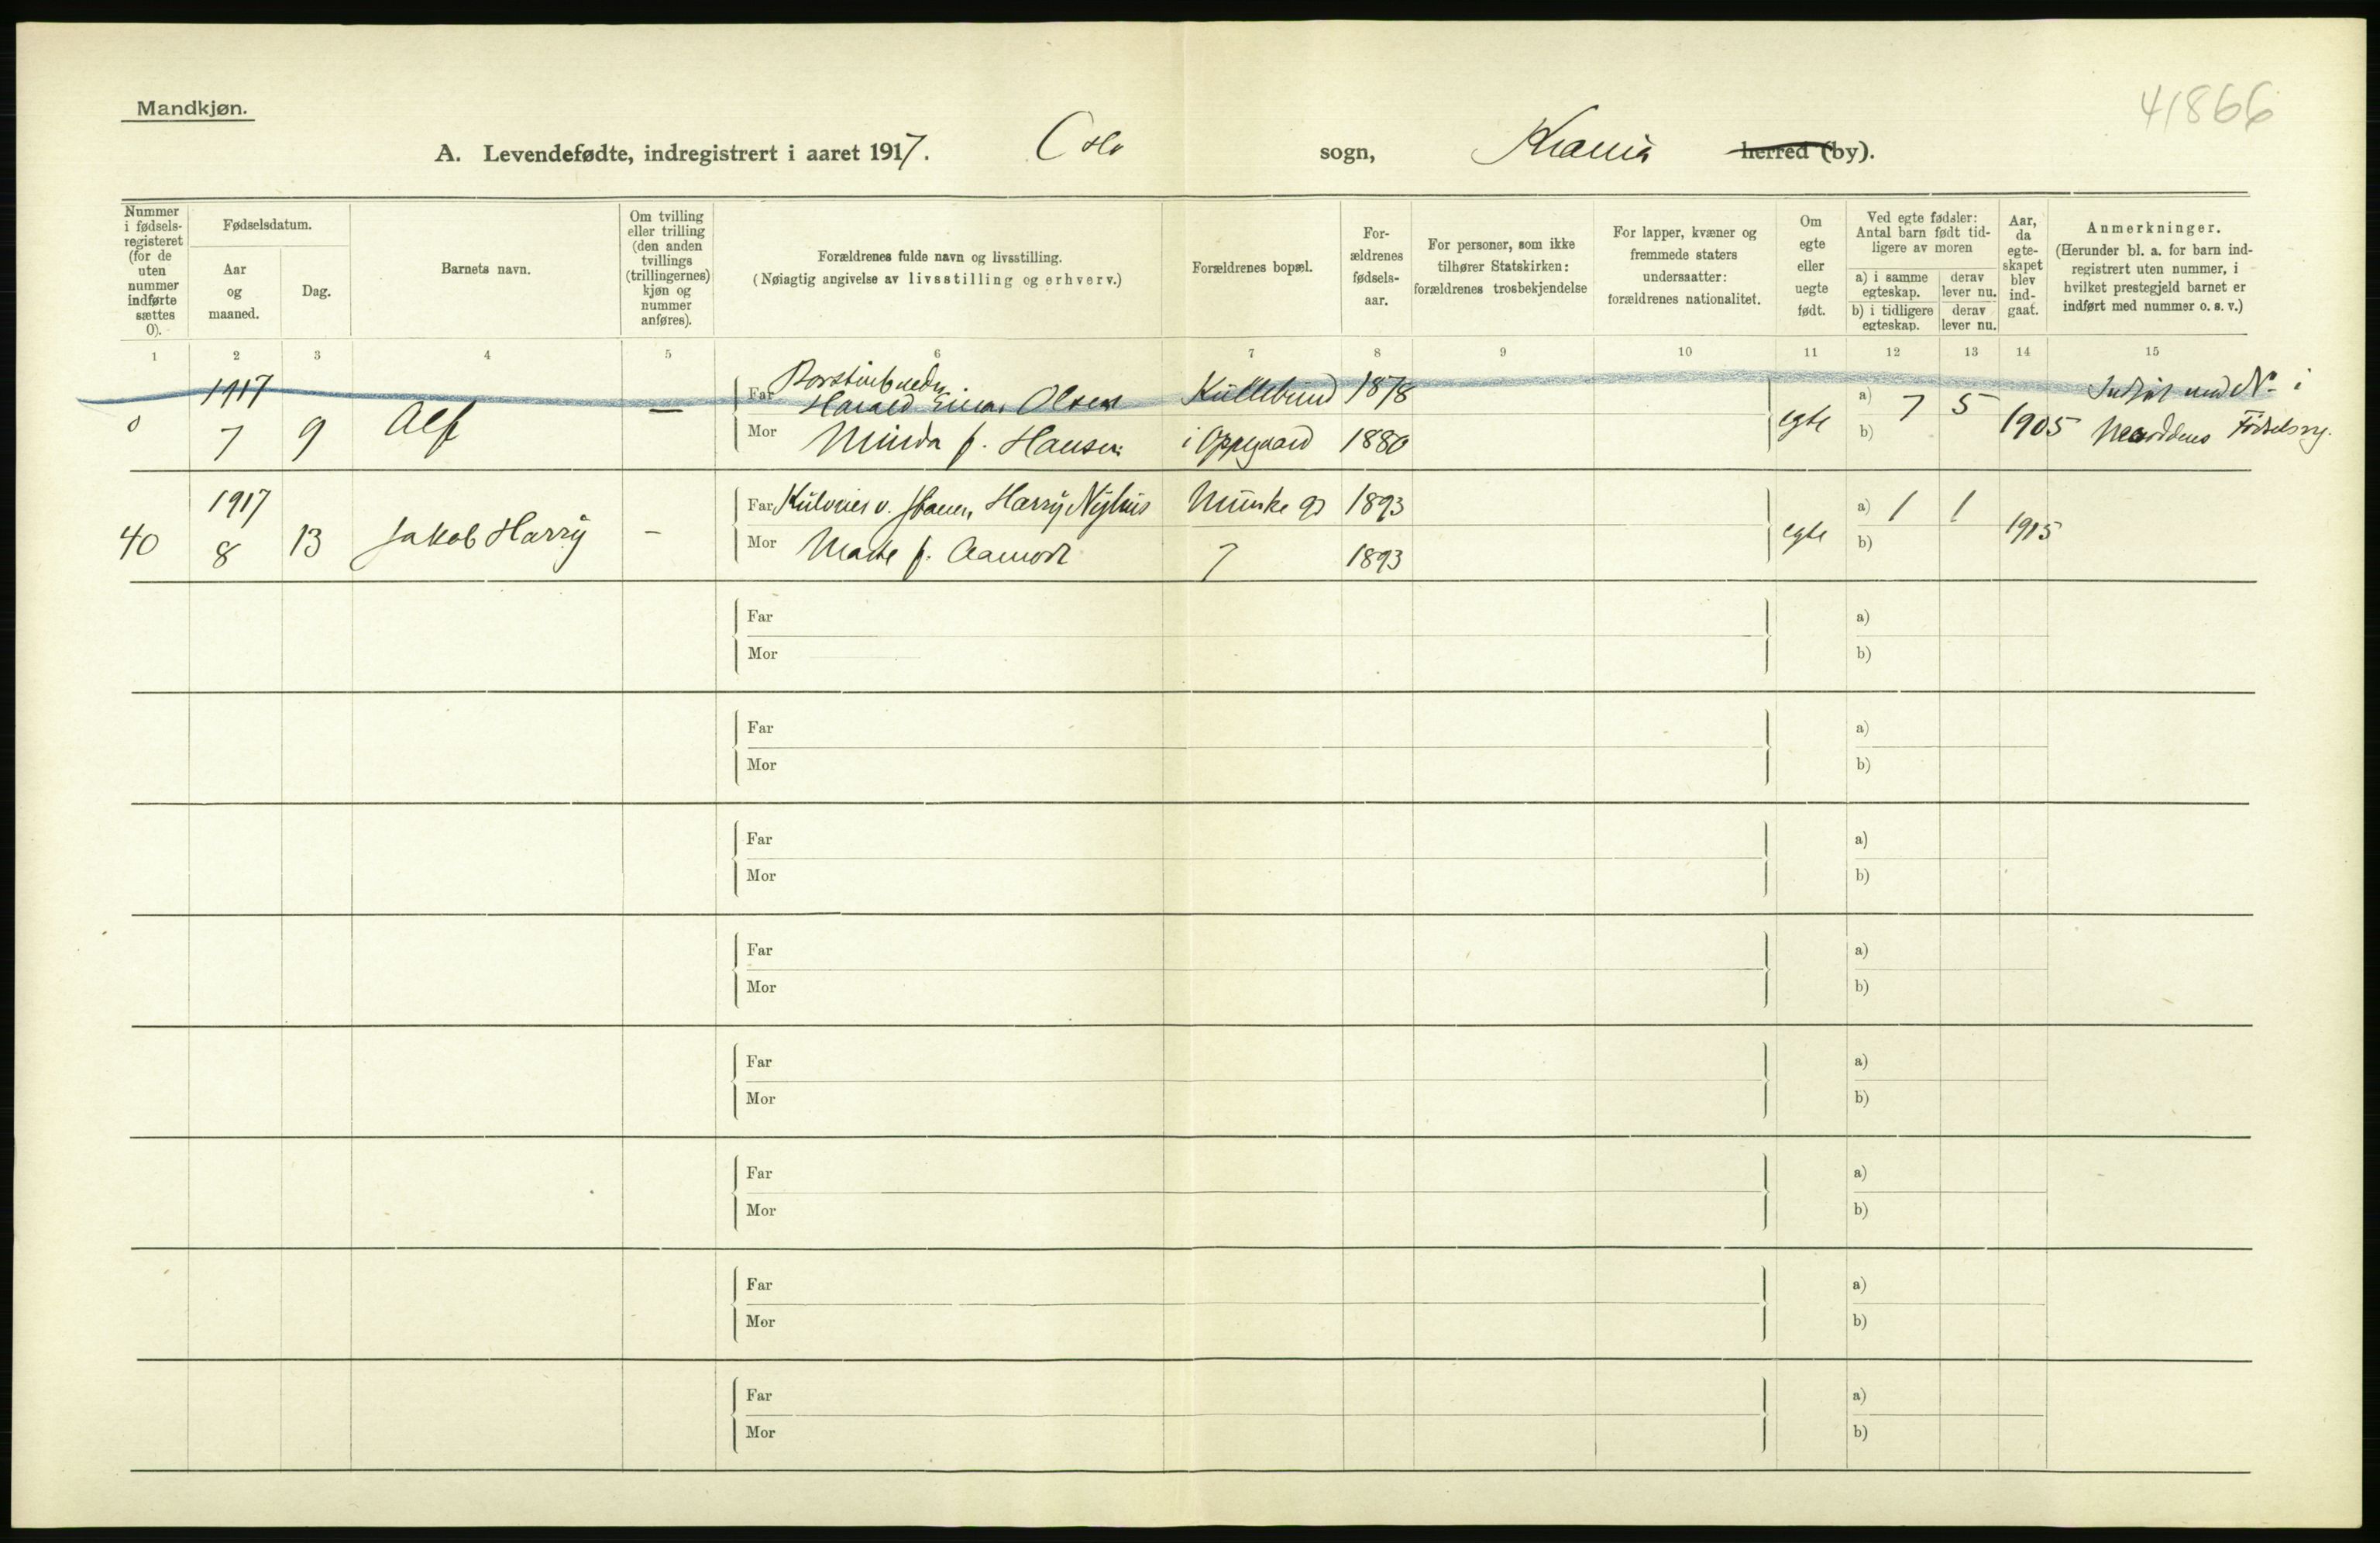 Mandkjøn.
41866
A. Levendefødte, indregistrert i aaret 1917. Oslo sogn, Krania herred (by).
Nummer i fødsels-registeret (for de uten nummer indførte sættes 0).
Fødselsdatum.
Aar og maaned.
Dag.
Barnets navn.
Om tvilling eller trilling (den anden tvillings (trillingernes) kjøn og nummer anføres).
Forældrenes fulde navn og livsstilling.
(Nøiagtig angivelse av livsstilling og erhverv.)
Forældrenes bopæl.
For-ældrenes fødsels-aar.
For personer, som ikke tilhører Statskirken: forældrenes trosbekjendelse
For lapper, kvæner og fremmede staters undersaatter: forældrenes nationalitet.
Om egte eller uegte født.
Ved egte fødsler: Antal barn født tid-ligere av moren
a) i samme egteskap.
derav lever nu.
b) i tidligere egteskap.
derav lever nu.
Aar, da egte-skapet blev ind-gaat.
Anmerkninger.
(Herunder bl. a. for barn ind-registrert uten nummer, i hvilket prestegjeld barnet er indført med nummer o. s. v.)
1 2 3 4 5 6 7 8 9 10 11 12 13 14 15
0 1917 7 9 Alf —
Far Harald Einar Olsen Kullebund 1878
Mor Minda f. Hansen i Oppegaard 1880
egte a) 7 5 b) 1905
No i Fødselsreg.
40 1917 8 13 Jakob Harry -
Far Harry Nyhus Munke g 1893
Mor Marte f. Aamodt 7 1893
egte a) 1 1 b) 1915
Far a)
Mor b)
Far a)
Mor b)
Far a)
Mor b)
Far a)
Mor b)
Far a)
Mor b)
Far a)
Mor b)
Far a)
Mor b)
Far a)
Mor b)